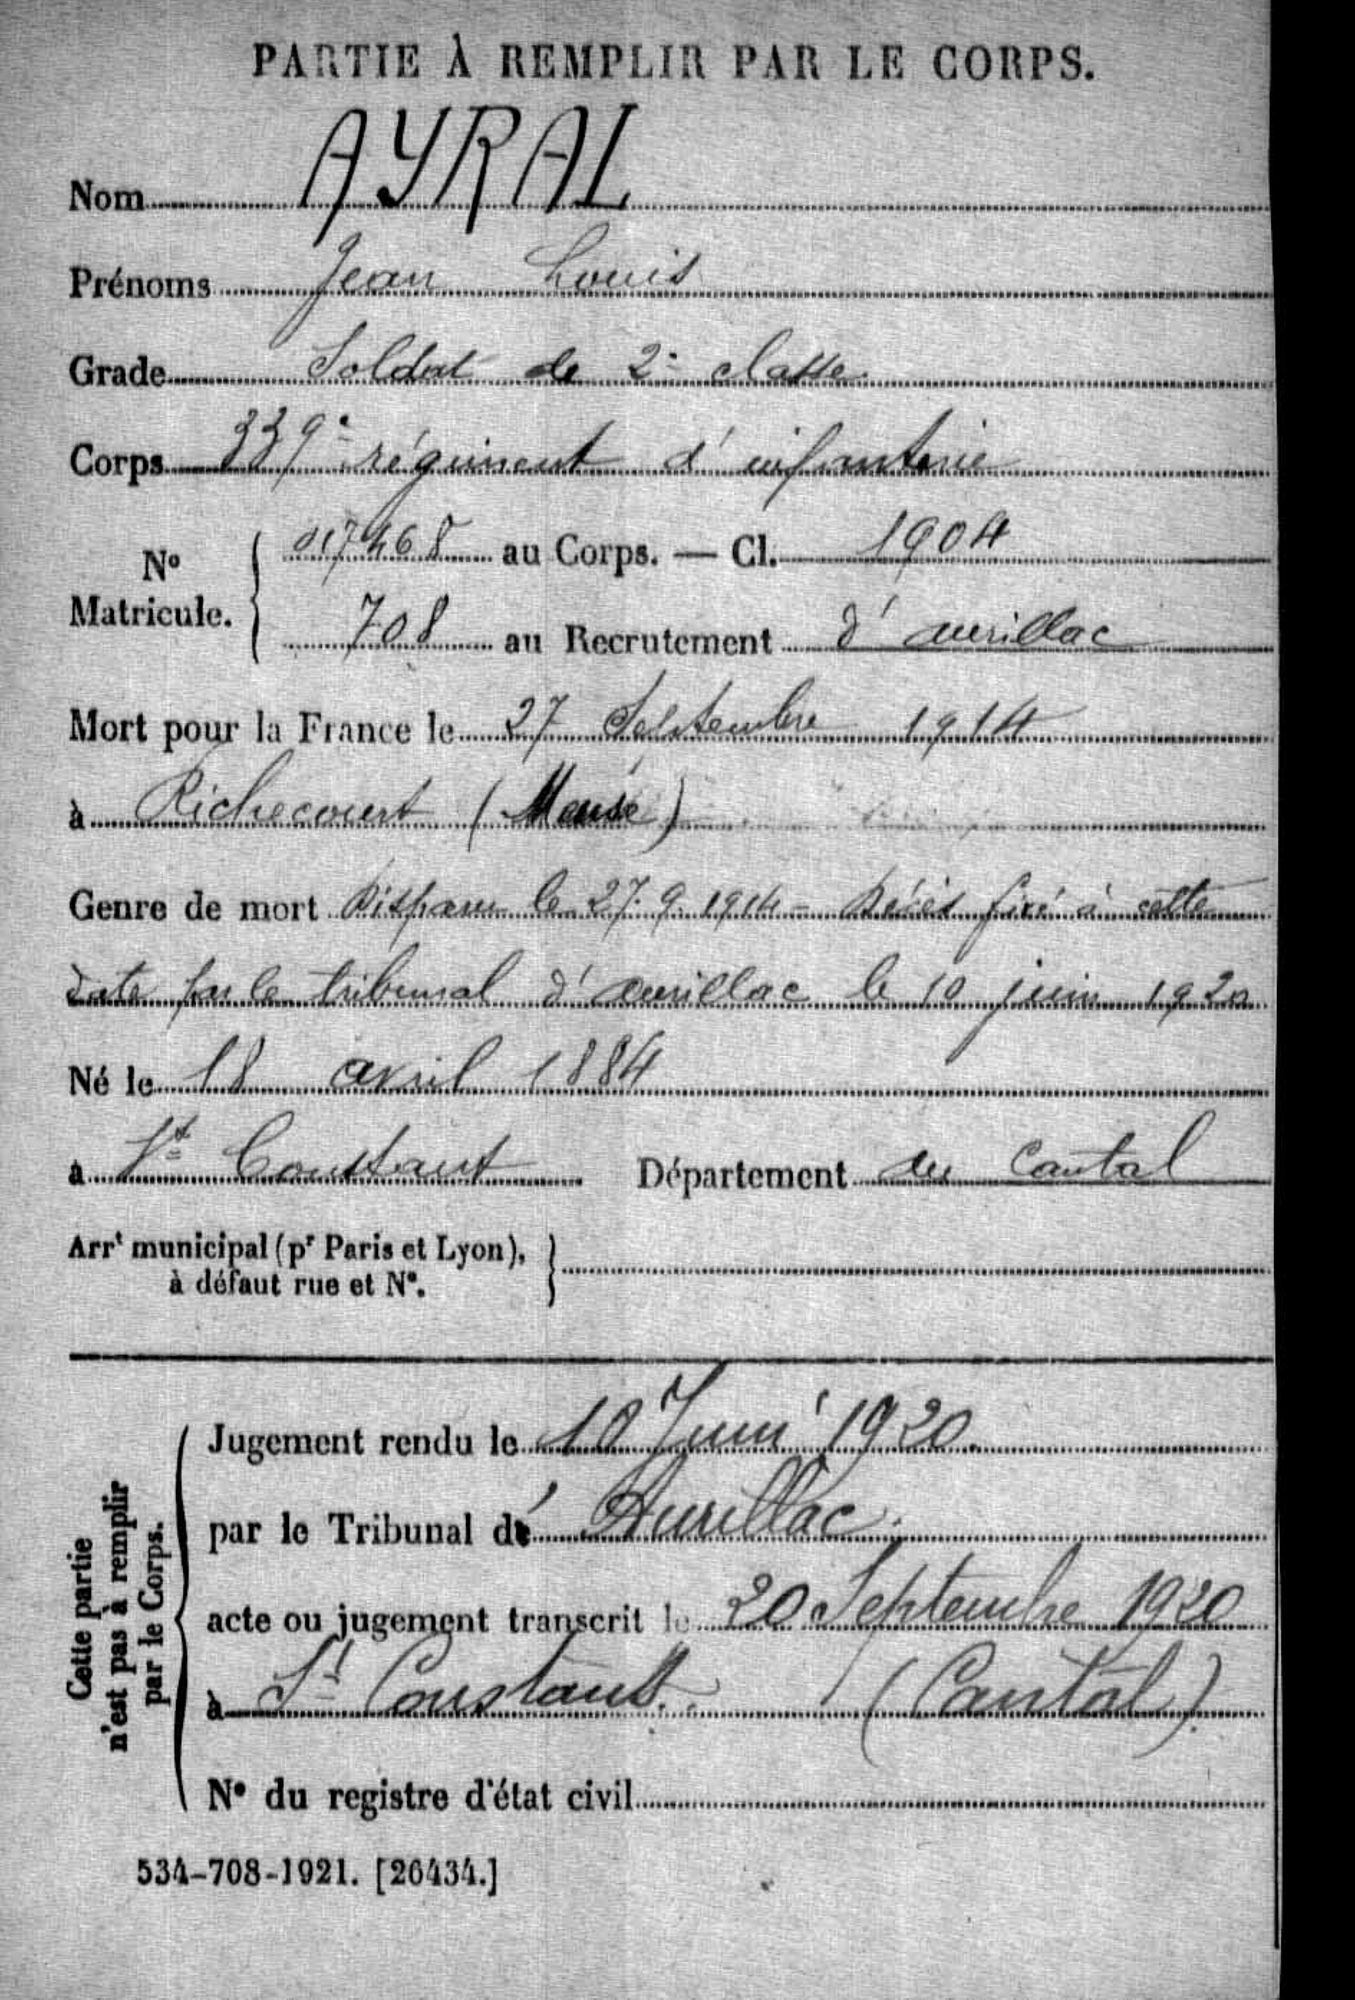 PARTIE À REMPLIR PAR LE CORPS.
Nom AYRAL
Prénoms Jean Louis
Grade Soldat de 2e classe
Corps 339e régiment d'infanterie
No Matricule. { 017468 au Corps. — Cl. 1904
708 au Recrutement d'aurillac
Mort pour la France le 27 Septembre 1914
à Richecourt (Meuse)
Genre de mort Disparu le 27.9.1914 – Décès fixé à cette
date par le tribunal d'aurillac le 10 juin 1920
Né le 18 avril 1884
à St Constant Département du Cantal
Arrt municipal (pr Paris et Lyon),
à défaut rue et No. }
Cette partie
n'est pas à remplir
par le Corps.
Jugement rendu le 10 Juin 1920.
par le Tribunal d' Aurillac.
acte ou jugement transcrit le 20 Septembre 1920
à St Constant. (Cantal)
No du registre d'état civil
534-708-1921. [26434.]